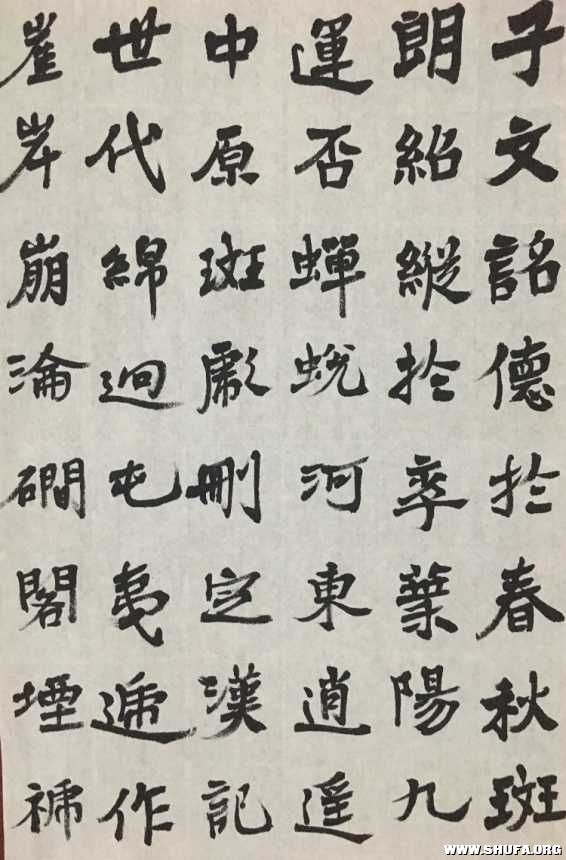 子文詺德於春秋斑
朗紹縱於季葉陽九
運否蟬蛻河東逍遙
中原斑彪刪定漢記
世代綿迥屯夷遞作
崖岸崩淪磵閣堙
WWW.SHUFA.ORG